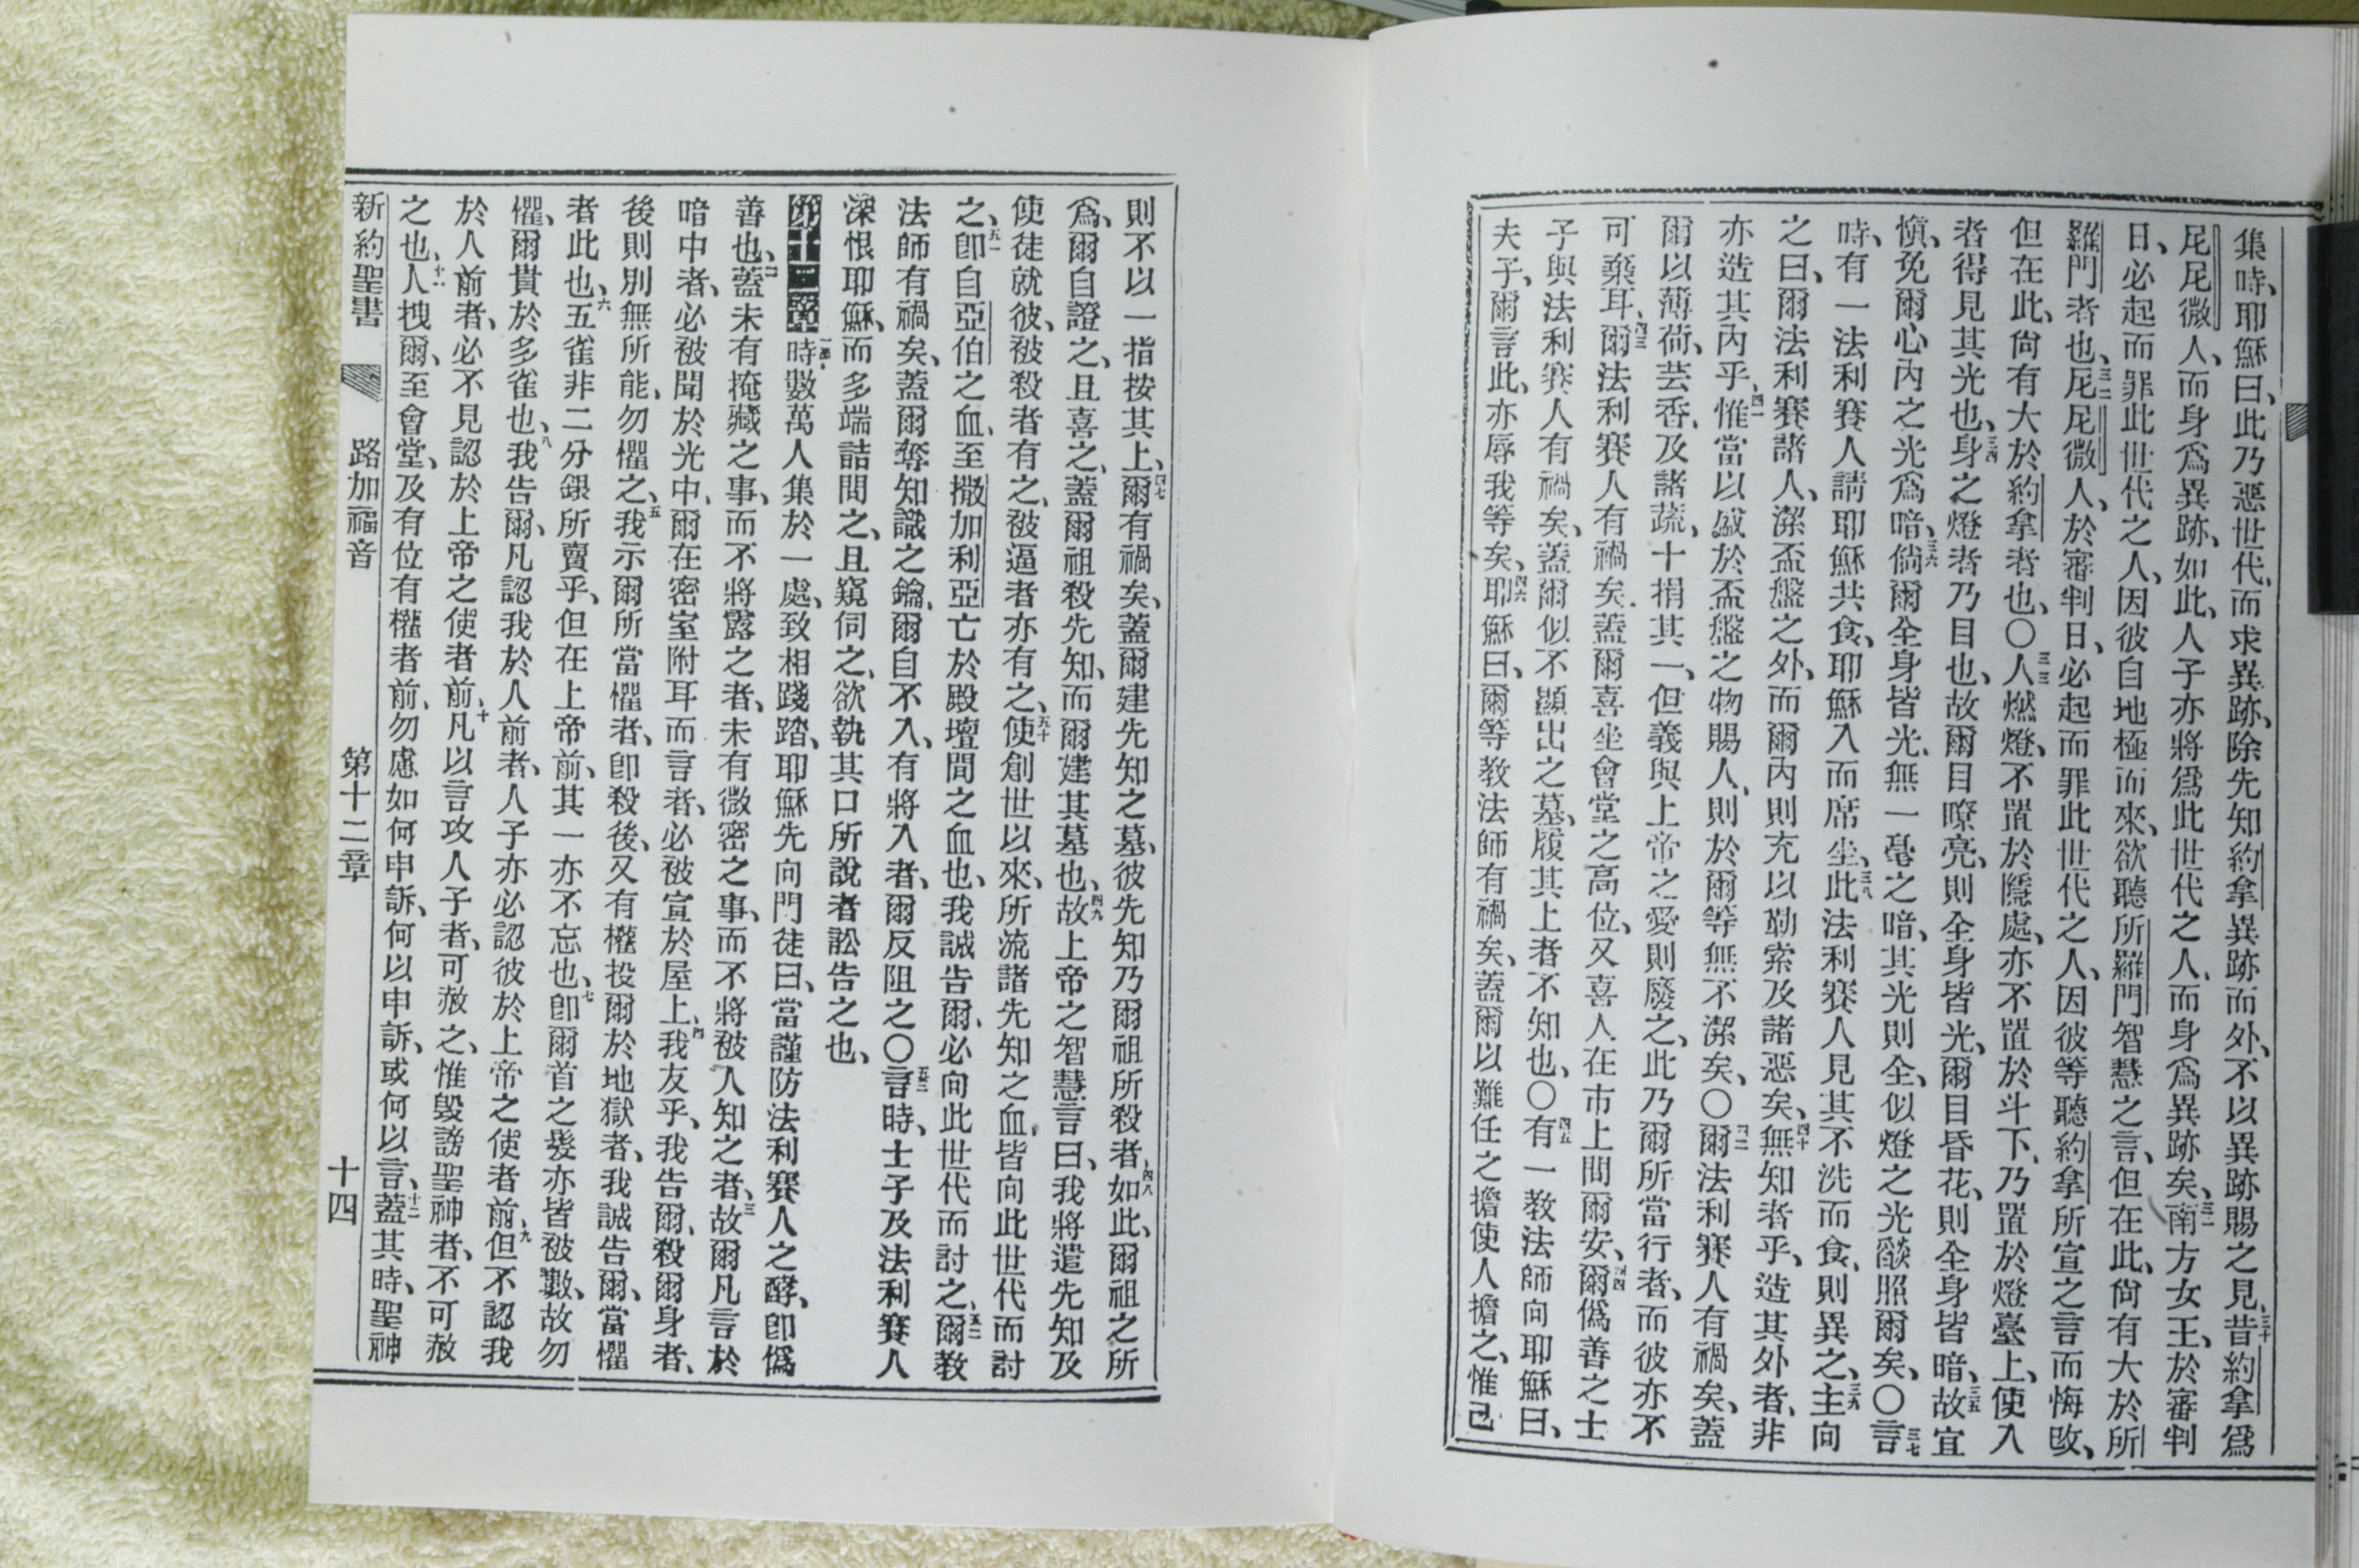 集時、耶穌曰、此乃惡世代、而求異跡、除先知約拿異跡而外、不以異跡賜之見、三十昔約拿爲
尼尼微人、而身爲異跡、如此、人子亦將爲此世代之人、而身爲異跡矣、三一南方女王、於審判
日、必起而罪此世代之人、因彼自地極而來、欲聽所羅門智慧之言、但在此、尙有大於所
羅門者也、三二尼尼微人、於審判日、必起而罪此世代之人、因彼等聽約拿所宣之言而悔改、
但在此、尙有大於約拿者也、〇三三人燃燈、不置於隱處、亦不置於斗下、乃置於燈臺上、使入
者得見其光也、三四身之燈者乃目也、故爾目瞭亮、則全身皆光、爾目昏花、則全身皆暗、三五故宜
愼、免爾心內之光爲暗、三六倘爾全身皆光、無一毫之暗、其光則全、似燈之光燄照爾矣、〇三七言
時、有一法利賽人請耶穌共食、耶穌入而席坐、三八此法利賽人見其不洗而食、則異之、三九主向
之曰、爾法利賽諸人、潔盃盤之外、而爾內則充以勒索及諸惡矣、四十無知者乎、造其外者、非
亦造其內乎、四一惟當以盛於盃盤之物賜人、則於爾等無不潔矣、〇四二爾法利賽人有禍矣、蓋
爾以薄荷、芸香、及諸蔬、十捐其一、但義與上帝之愛則廢之、此乃爾所當行者、而彼亦不
可棄耳、四三爾法利賽人有禍矣、蓋爾喜坐會堂之高位、又喜人在市上問爾安、四四爾僞善之士
子與法利賽人有禍矣、蓋爾似不顯出之墓、履其上者不知也、〇四五有一教法師向耶穌曰、
夫子、爾言此、亦辱我等矣、四六耶穌曰、爾等教法師有禍矣、蓋爾以難任之擔使人擔之、惟己
則不以一指按其上、四七爾有禍矣、蓋爾建先知之墓、彼先知乃爾祖所殺者、四八如此、爾祖之所
爲、爾自證之、且喜之、蓋爾祖殺先知、而爾建其墓也、四九故上帝之智慧言曰、我將遣先知及
使徒就彼、被殺者有之、被逼者亦有之、五十使創世以來、所流諸先知之血、皆向此世代而討
之、五一卽自亞伯之血、至撒加利亞亡於殿壇間之血也、我誠告爾、必向此世代而討之、五二爾教
法師有禍矣、蓋爾奪知識之鑰、爾自不入、有將入者、爾反阻之〇五三言時、士子及法利賽人
深恨耶穌、而多端詰問之、且窺伺之、欲執其口所說者訟告之也、
第十二章 一節時、數萬人集於一處、致相踐踏、耶穌先向門徒曰、當謹防法利賽人之酵、卽僞
善也、二蓋未有掩藏之事、而不將露之者、未有微密之事、而不將被人知之者、三故爾凡言於
暗中者、必被聞於光中、爾在密室附耳而言者、必被宣於屋上、四我友乎、我告爾、殺爾身者、
後則別無所能、勿懼之、五我示爾所當懼者、卽殺後、又有權投爾於地獄者、我誠告爾、當懼
者此也、六五雀非二分銀所賣乎、但在上帝前、其一亦不忘也、七卽爾首之髮亦皆被數、故勿
懼、爾貴於多雀也、八我告爾、凡認我於人前者、人子亦必認彼於上帝之使者前、九但不認我
於人前者、必不見認於上帝之使者前、十凡以言攻人子者、可赦之、惟毀謗聖神者、不可赦
之也、十一人拽爾、至會堂、及有位有權者前、勿慮如何申訴、何以申訴、或何以言、十二蓋其時、聖神
新約聖書 路加福音 第十二章 十四